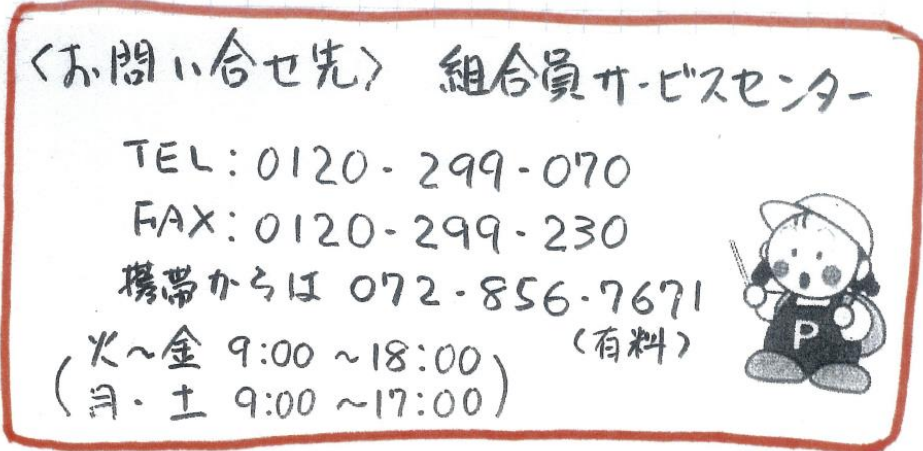 〈お問い合せ先〉 組合員サービスセンター
TEL:0120-299-070
FAX:0120-299-230
携帯からは 072-856-7671
(有料)
(火~金 9:00 ~18:00
月・土 9:00 ~17:00)
P